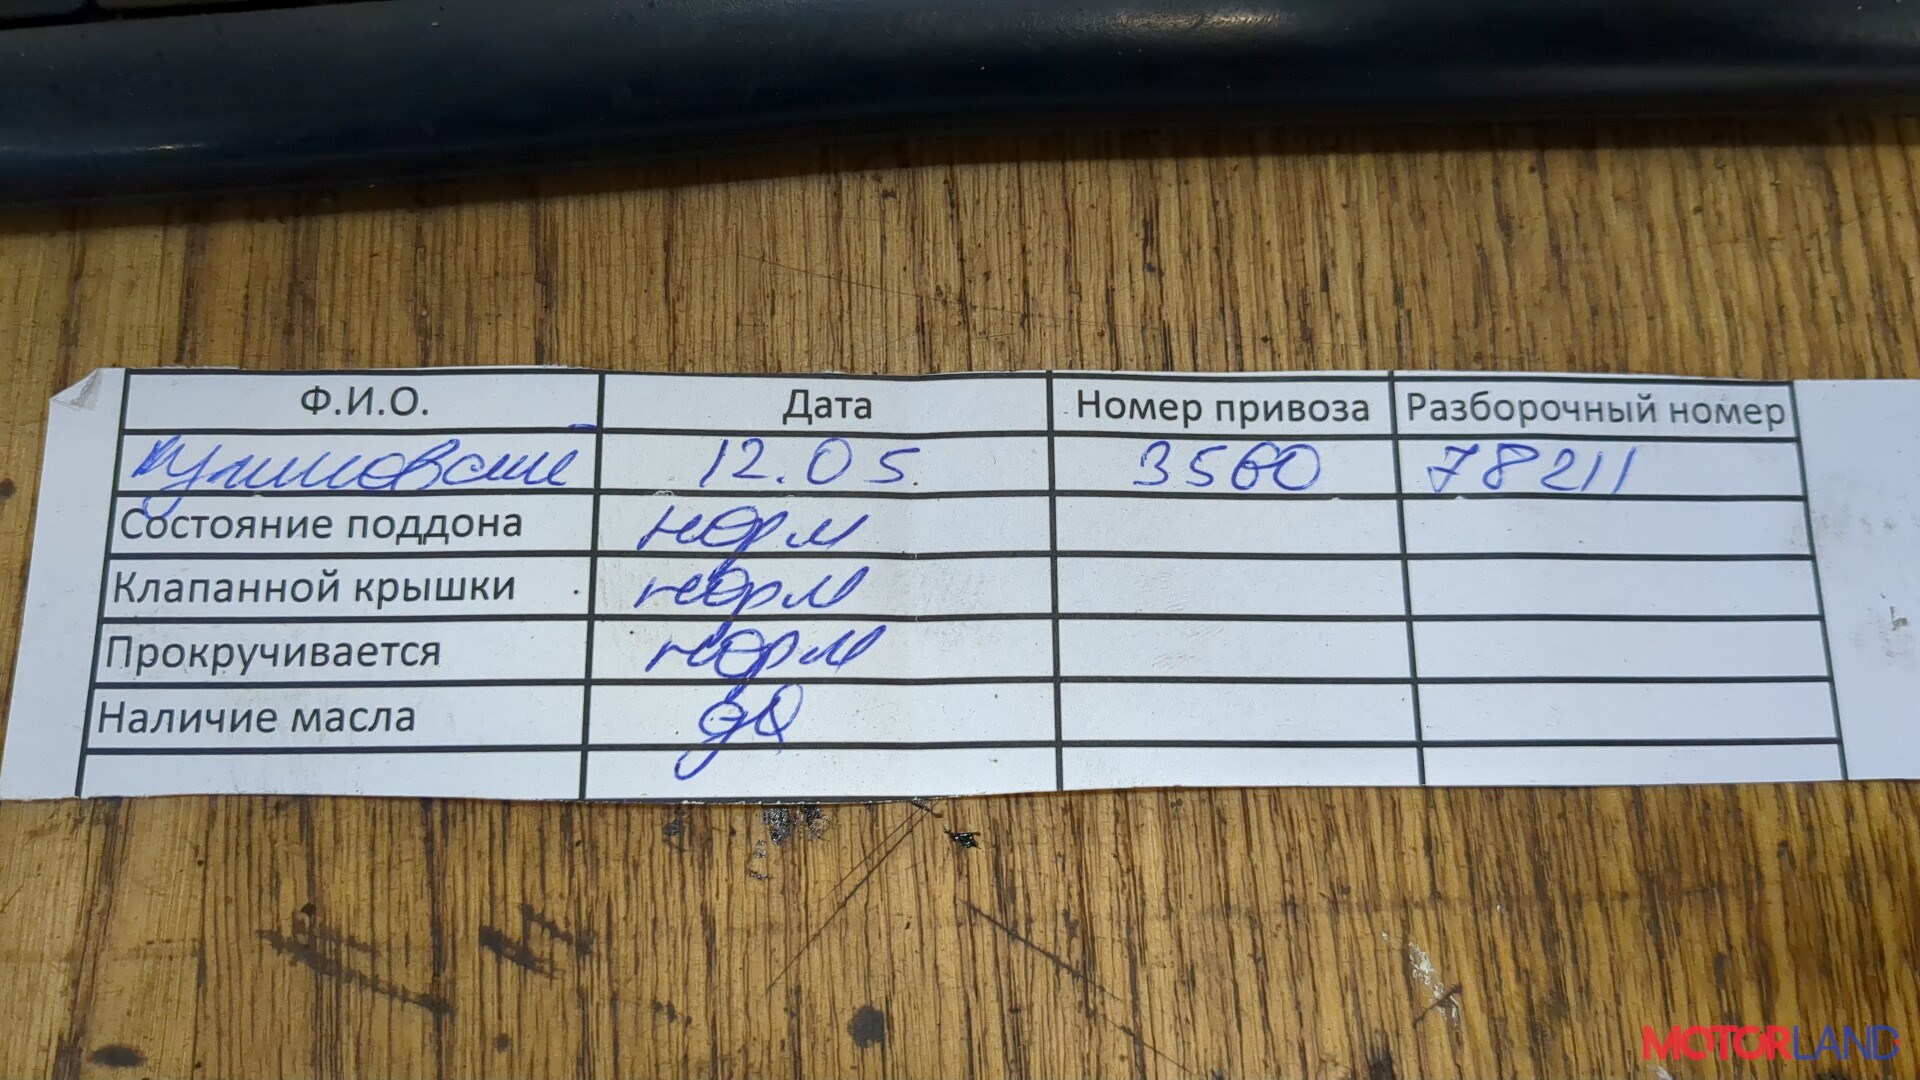 Ф.И.О. Дата Номер привоза Разборочный номер
12.05. 3560 78211
Состояние поддона норм
Клапанной крышки норм
Прокручивается норм
Наличие масла да
MOTORLAND